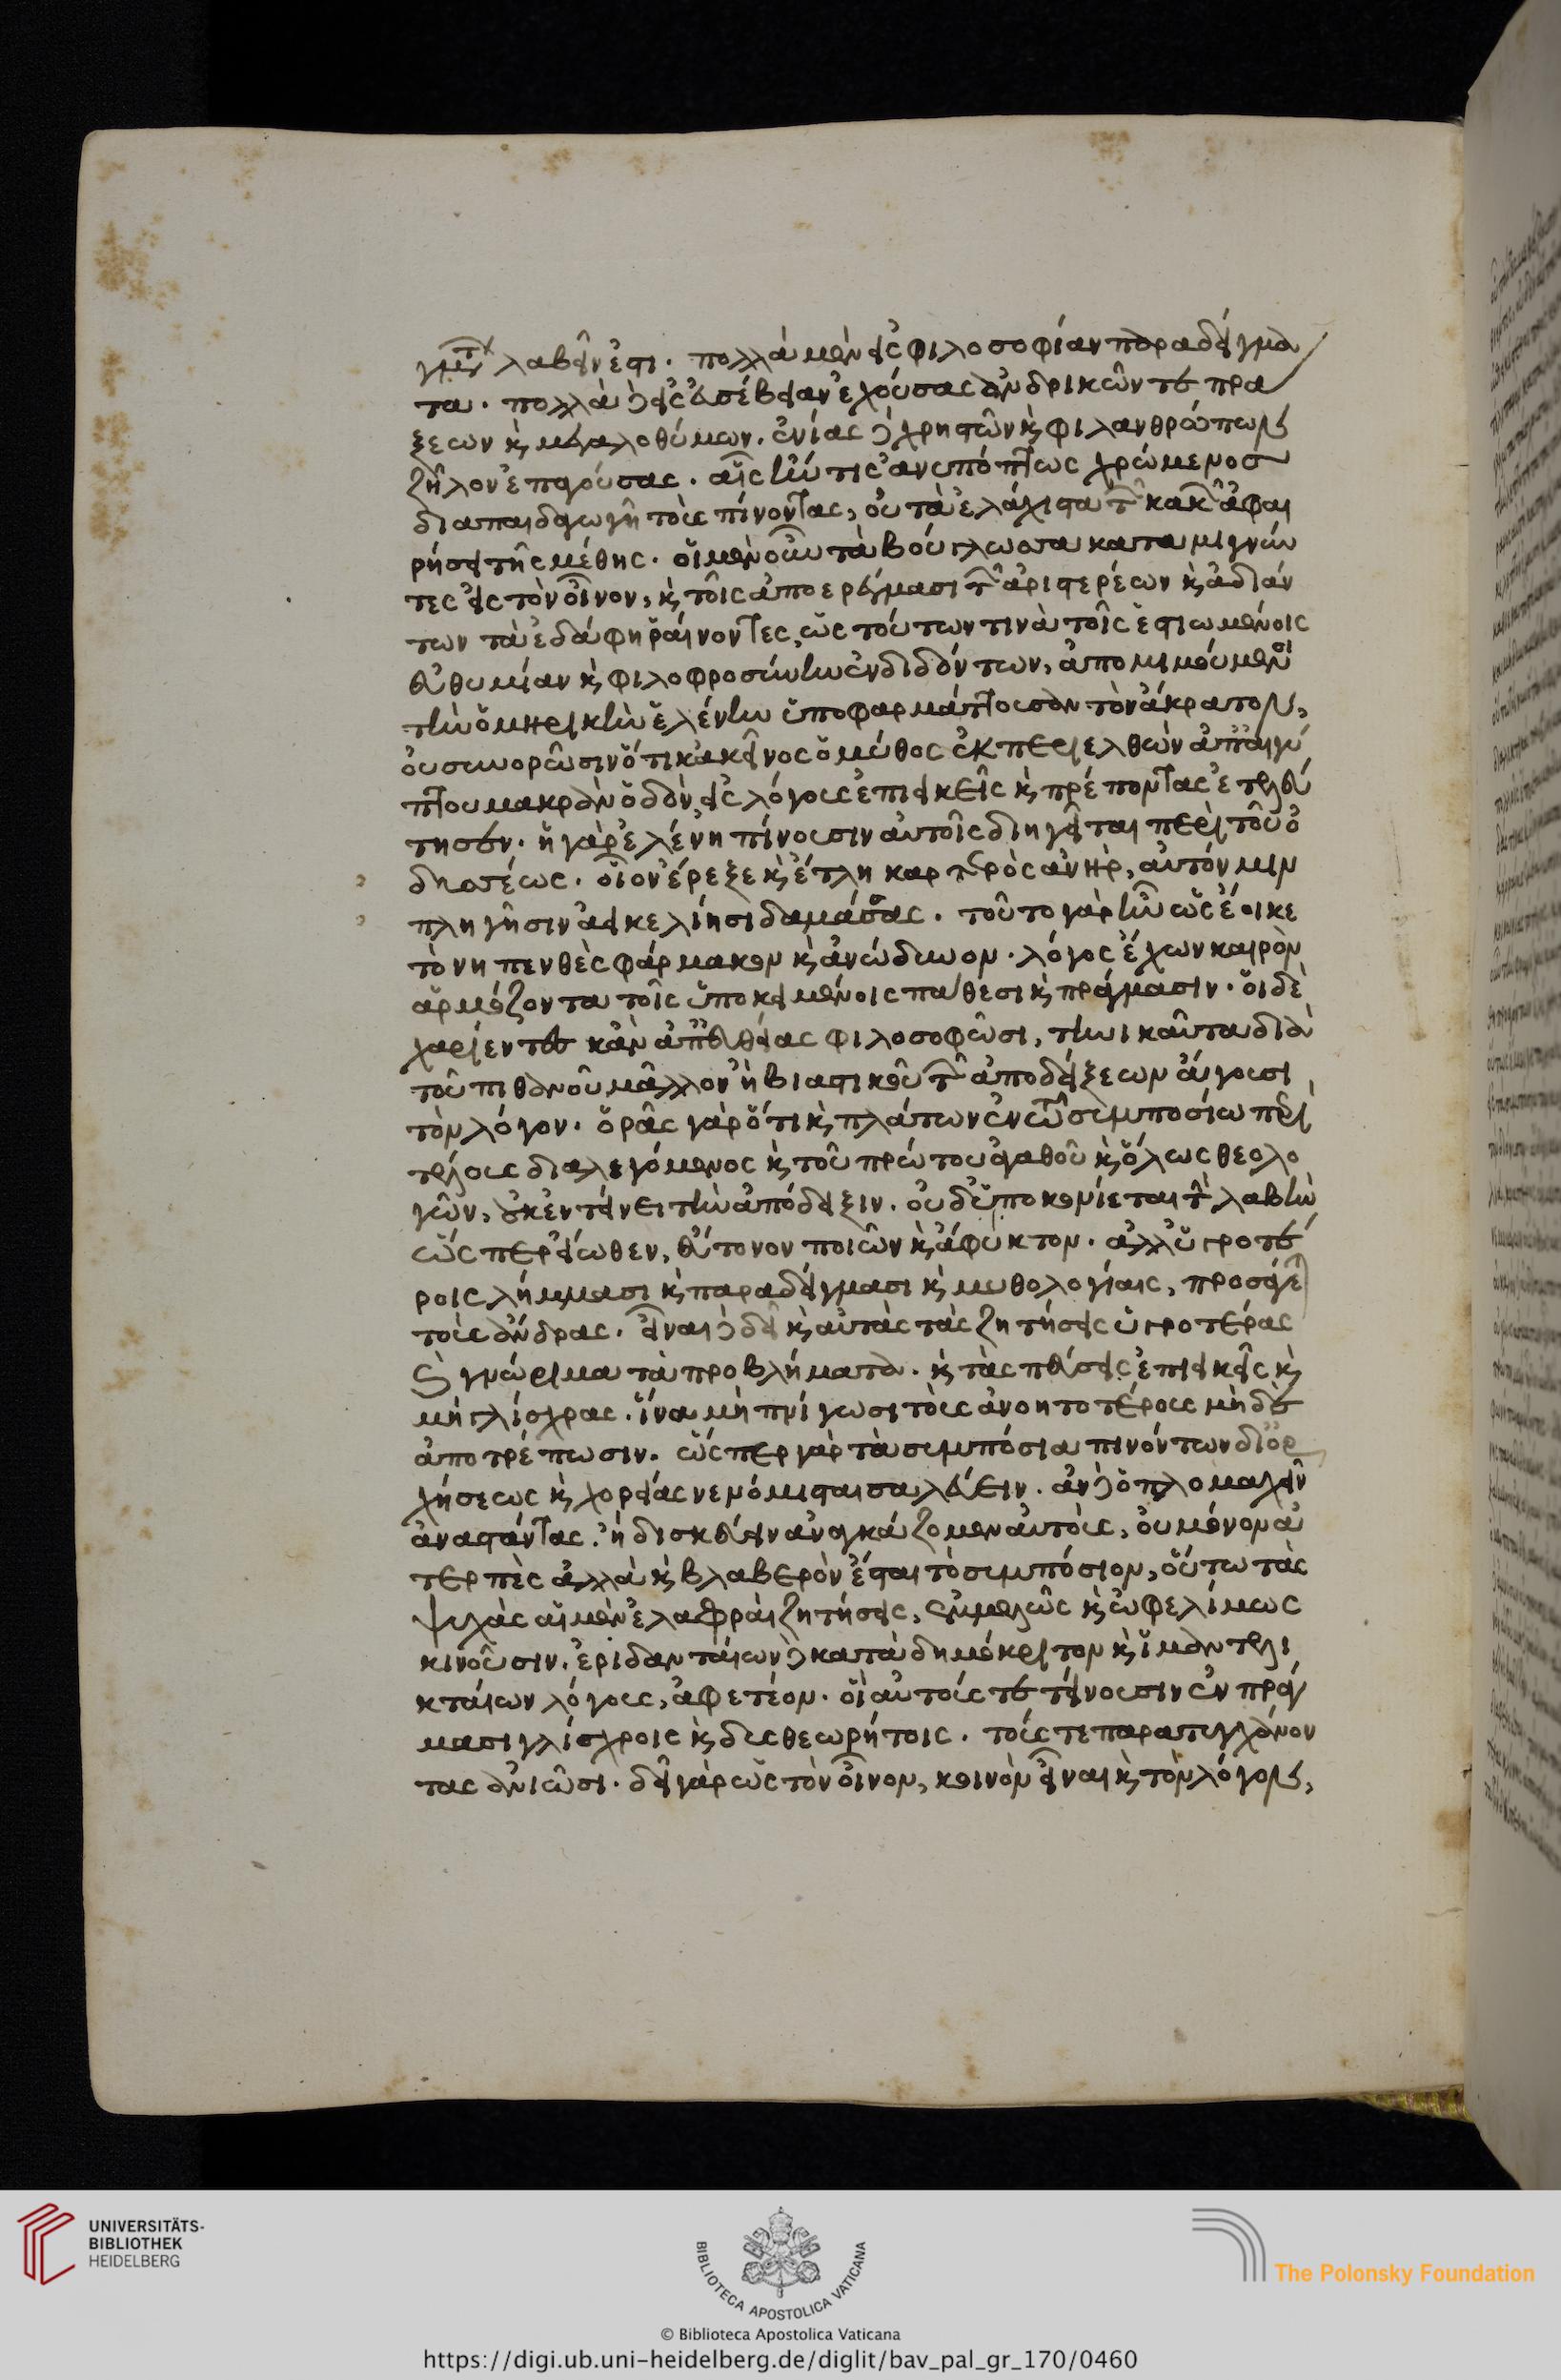 γμάτων λαβεῖν ἐστι. πολλὰ μὲν εἰς φιλοσοφίαν παραδείγμα
τα. πολλὰ δ' εἰς εὐσέβειαν ἐχούσας ἀνδρικῶν τε πρά
ξεων καὶ μεγαλοθύμων. ἐνίας δὲ χρηστῶν καὶ φιλανθρώπων
ζῆλον ἐπαγούσας. αἷς ἤν τις ἀνυπόπτως χρώμενος
διαπαιδαγωγῇ τοὺς πίνοντας, οὐ τὰ ἐλάχιστα τῶν κακῶν ἀφαι
ρήσει τῆς μέθης. οἱ μὲν οὖν τὰ βούγλωσσα καταμιγνύν
τες εἰς τὸν οἶνον, καὶ τοῖς ἀποβρέγμασι τῶν ἀριστερέων καὶ ἀδιάν
των τὰ ἐδάφη ῥαίνοντες, ὡς τούτων τινὰ τοῖς ἑστιωμένοις
εὐθυμίαν καὶ φιλοφροσύνην ἐνδιδόντων, ἀπομιμούμενοι
τὴν ὁμηρικὴν ἑλένην ὑποφαρμάττουσαν τὸν ἄκρατον,
οὐ συνορῶσιν ὅτι κἀκεῖνος ὁ μῦθος ἐκπεριελθὼν ἀπ' αἰγύ
πτου μακρὰν ὁδὸν, εἰς λόγους ἐπιεικεῖς καὶ πρέποντας ἐτελεύ
τησεν. ἡ γὰρ ἑλένη πίνουσιν αὐτοῖς διηγεῖται περὶ τοῦ ὀ
δυσσέως. οἷον ἔρεξε καὶ ἔτλη καρτερὸς ἀνὴρ, αὐτόν μιν
πληγῇσιν ἀεικελίῃσι δαμάσσας. τοῦτο γὰρ ἦν ὡς ἔοικε
τὸ νηπενθὲς φάρμακον καὶ ἀνώδυνον. λόγος ἔχων καιρὸν
ἁρμόζοντα τοῖς ὑποκειμένοις πάθεσι καὶ πράγμασιν. οἱ δὲ
χαρίεντες κἂν ἀπ' εὐθείας φιλοσοφῶσι, τηνικαῦτα διὰ
τοῦ πιθανοῦ μᾶλλον ἢ βιαστικοῦ τῶν ἀποδείξεων ἄγουσι
τὸν λόγον. ὁρᾷς γὰρ ὅτι καὶ πλάτων ἐν τῷ συμποσίῳ περὶ
τέλους διαλεγόμενος καὶ τοῦ πρώτου ἀγαθοῦ καὶ ὅλως θεολο
γῶν, οὐκ ἐντείνει τὴν ἀπόδειξιν. οὐδ' ὑποκονίεται τὴν λαβὴν
ὥσπερ εἴωθεν, εὔτονον ποιῶν καὶ ἄφυκτον. ἀλλ' ὑγροτέ
ροις λήμμασι καὶ παραδείγμασι καὶ μυθολογίαις, προσάγεται
τοὺς ἄνδρας. εἶναι δὲ δεῖ καὶ αὐτὰς τὰς ζητήσεις ὑγροτέρας
καὶ γνώριμα τὰ προβλήματα. καὶ τὰς πεύσεις ἐπιεικεῖς καὶ
μὴ γλίσχρας. ἵνα μὴ πνίγωσι τοὺς ἀνοητοτέρους μηδὲ
ἀποτρέπωσιν. ὥσπερ γὰρ τὰ συμπόσια πινόντων δι' ὀρ
χήσεως καὶ χορείας νενόμισται σαλεύειν. ἂν δ' ὁπλομαχεῖν
ἀναστάντας. ἢ δισκεύειν ἀναγκάζωμεν αὐτοὺς, οὐ μόνον ἀ
τερπὲς ἀλλὰ καὶ βλαβερὸν ἔσται τὸ συμπόσιον, οὕτω τὰς
ψυχὰς αἱ μὲν ἐλαφραὶ ζητήσεις, ἐμμελῶς καὶ ὠφελίμως
κινοῦσιν. ἐριδαντέων δὲ κατὰ δημόκριτον καὶ ἱμαντελι
κτέων λόγους, ἀφετέον. οἳ αὐτούς τε τείνουσιν ἐν πράγ
μασι γλίσχροις καὶ δυσθεωρήτοις. τούς τε παρατυγχάνον
τας ἀνιῶσι. δεῖ γὰρ ὡς τὸν οἶνον, κοινὸν εἶναι καὶ τὸν λόγον,
UNIVERSITÄTS-
BIBLIOTHEK
HEIDELBERG
BIBLIOTECA APOSTOLICA VATICANA
The Polonsky Foundation
© Biblioteca Apostolica Vaticana
https://digi.ub.uni-heidelberg.de/diglit/bav_pal_gr_170/0460